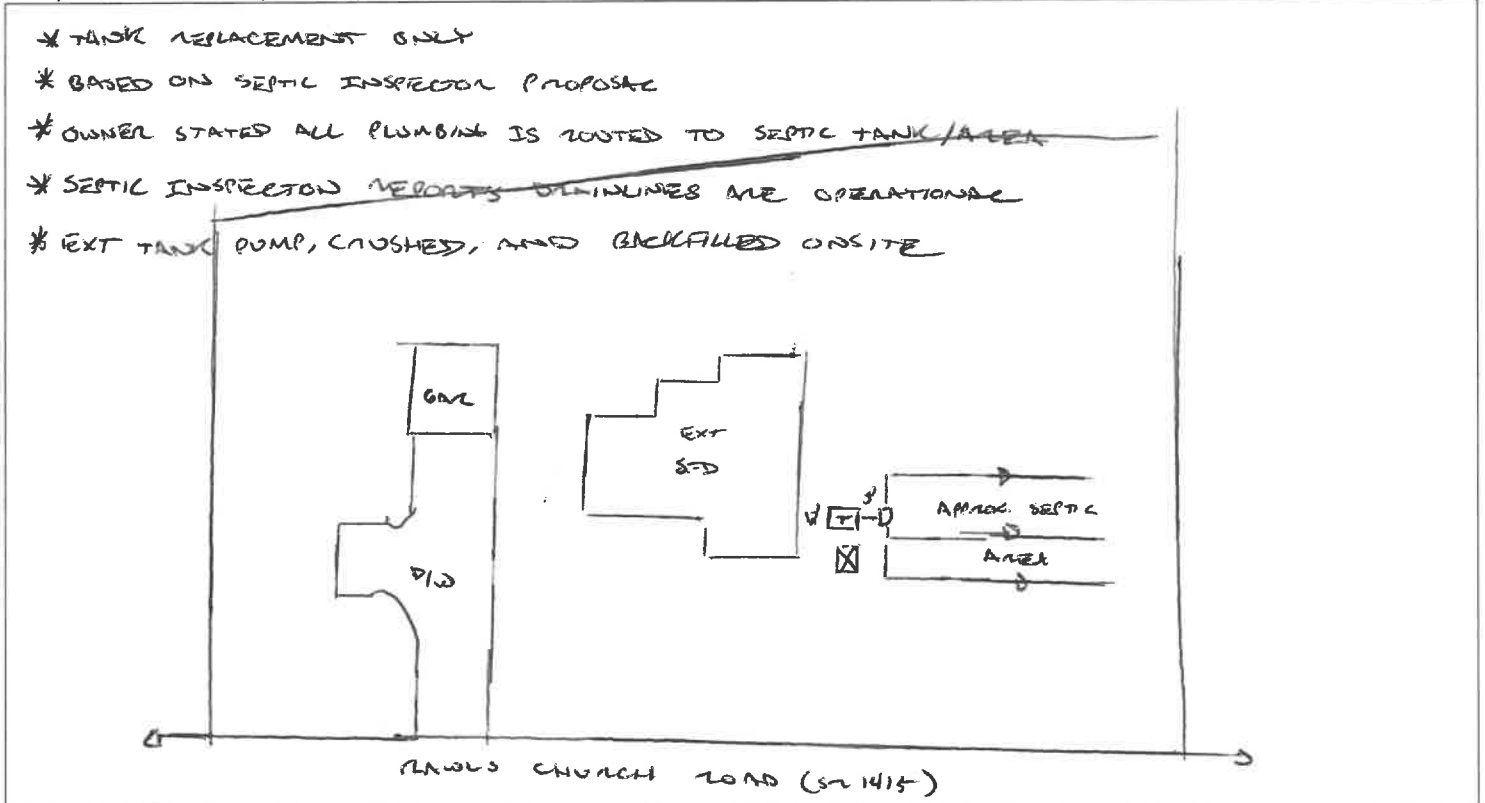 * TANK REPLACEMENT ONLY
* BASED ON SEPTIC INSPECTOR PROPOSAL
* OWNER STATED ALL PLUMBING IS ROUTED TO SEPTIC TANK/AREA
* SEPTIC INSPECTION REPORTS DRAINLINES ARE OPERATIONAL
* EXT TANK PUMP, CRUSHED, AND BACKFILLED ONSITE
GAR
EXT
SFD
T
D
APPROX. SEPTIC
AREA
D/W
RAWLS CHURCH ROAD (SR 1415)